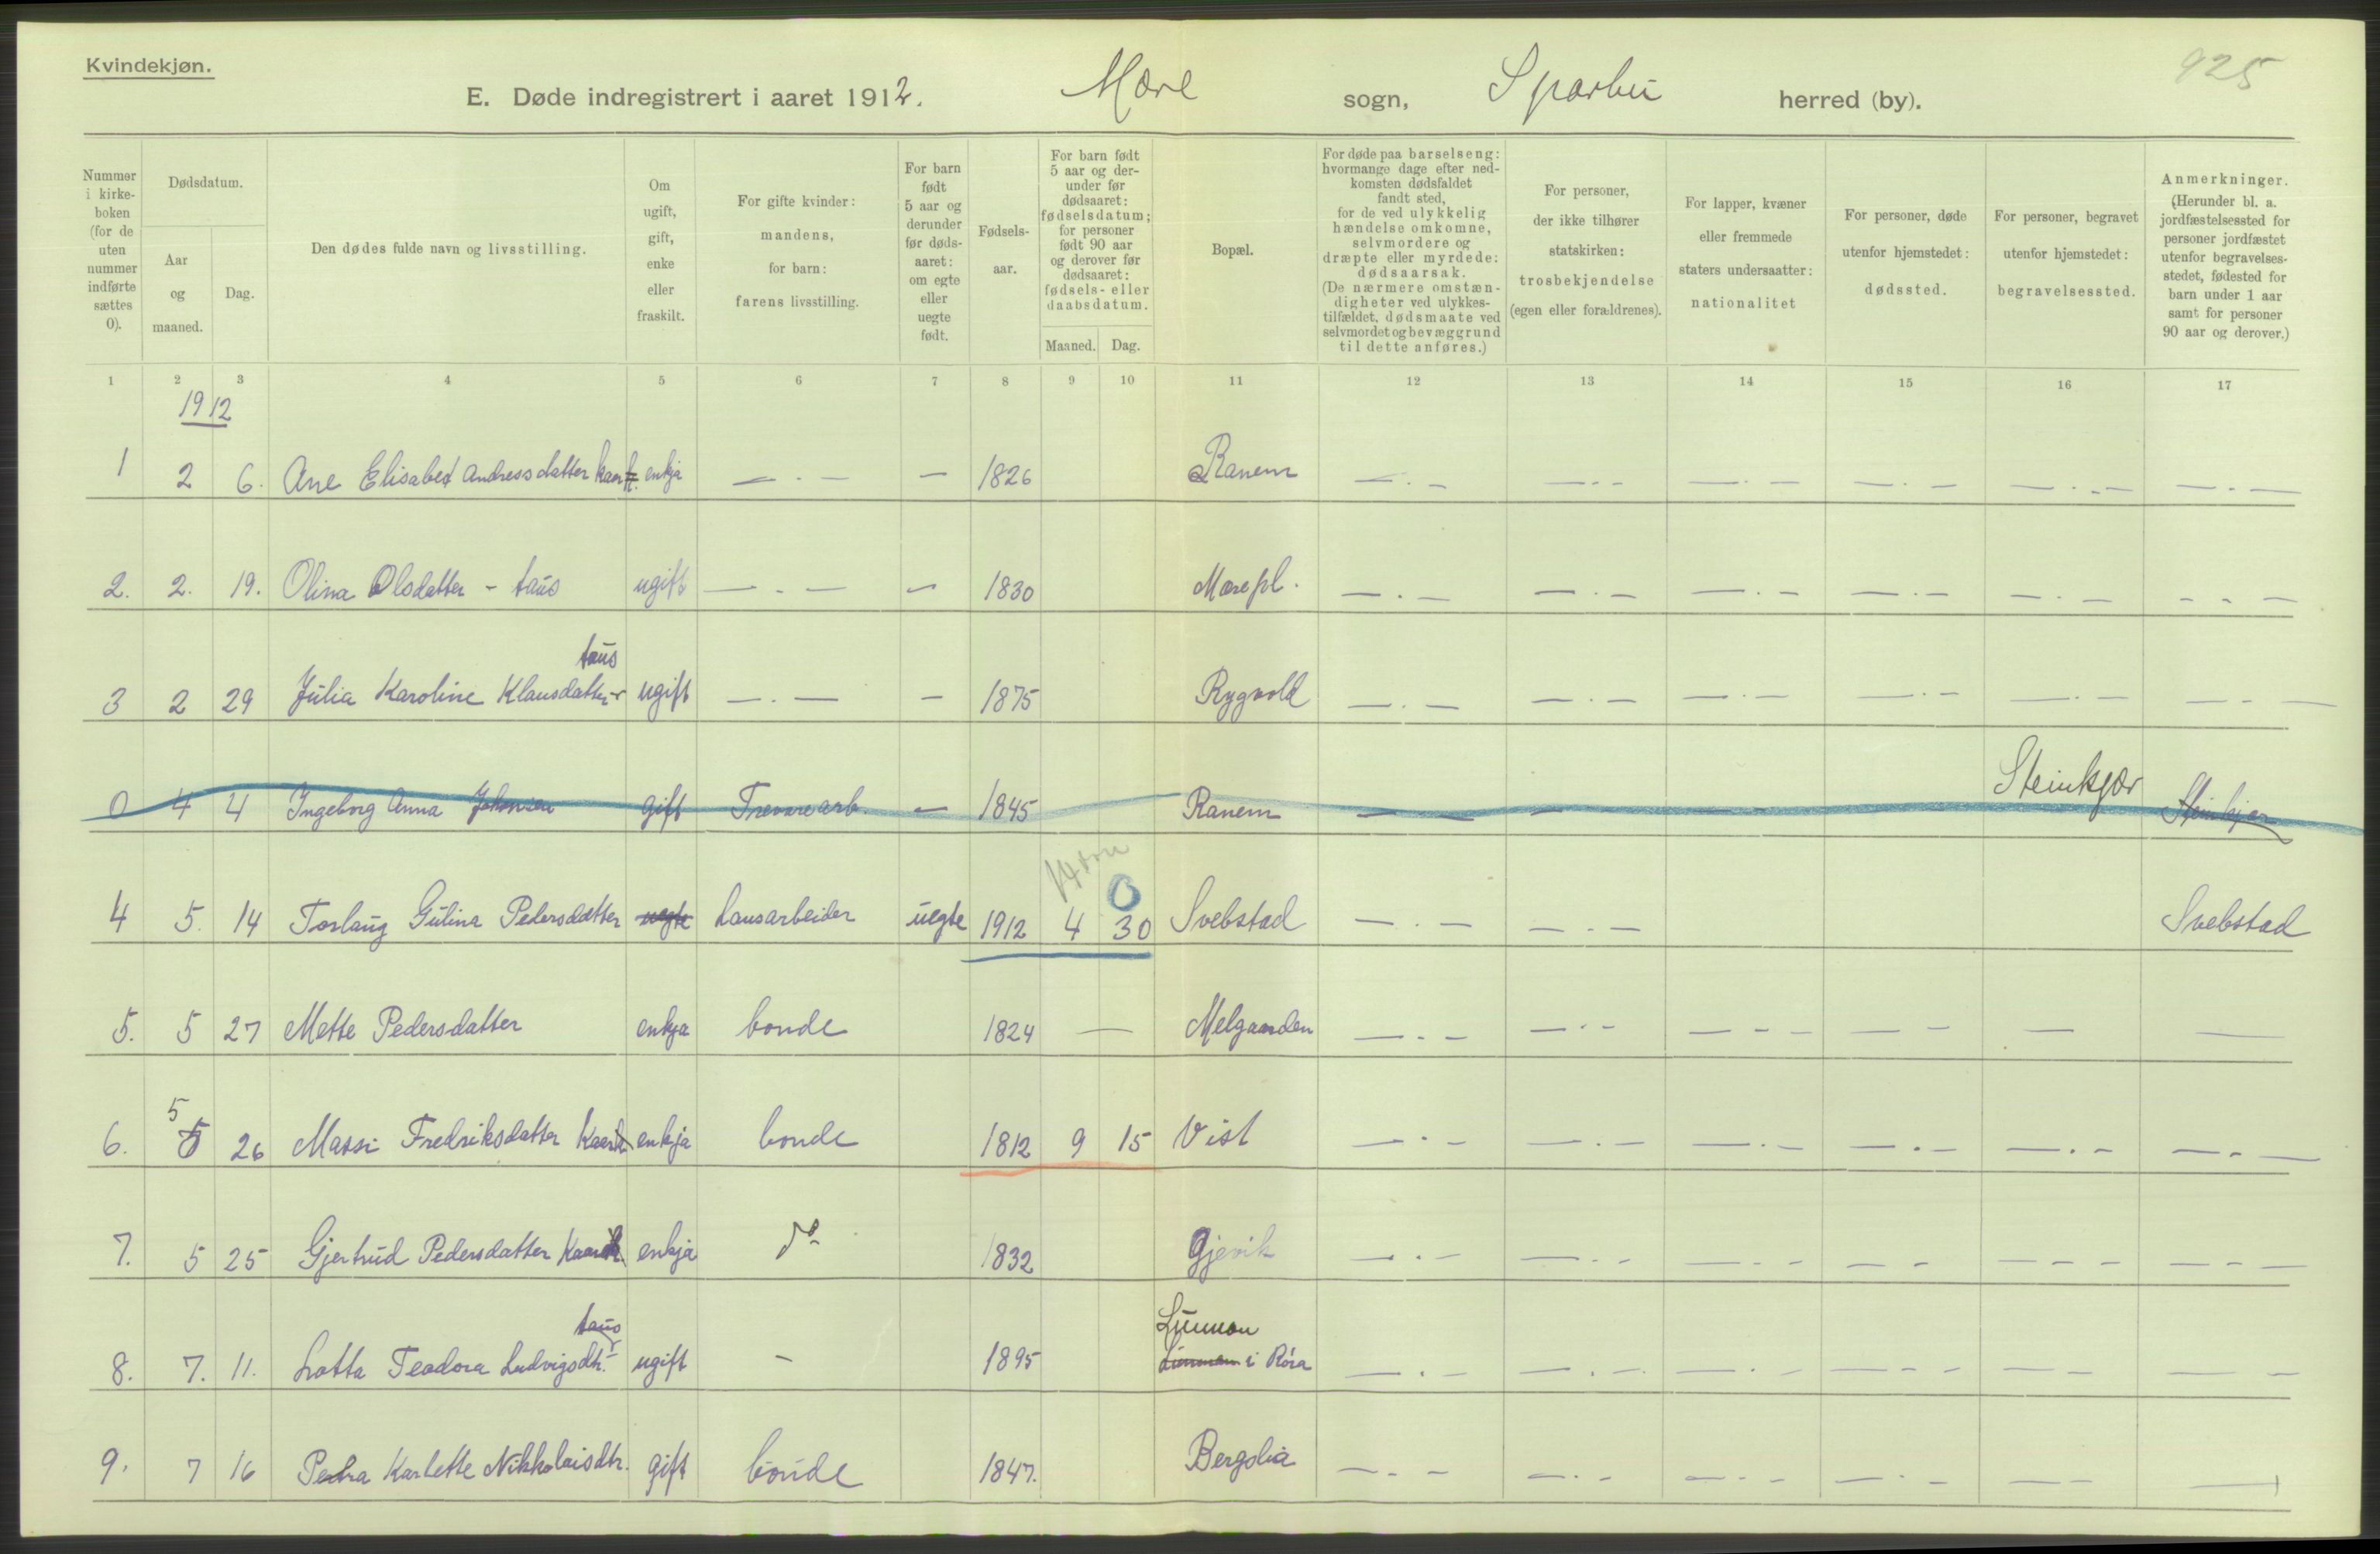 Kvindekjøn.
925
E. Døde indregistrert i aaret 1912. Mære sogn, Sparbu herred (by).
Nummer i kirke-boken (for de uten nummer indførte sættes 0).
Dødsdatum.
Aar og maaned.
Dag.
Den dødes fulde navn og livsstilling.
Om ugift, gift, enke eller fraskilt.
For gifte kvinder: mandens, for barn: farens livsstilling.
For barn født 5 aar og derunder før døds-aaret: om egte eller uegte født.
Fødsels-aar.
For barn født 5 aar og der-under før dødsaaret: fødselsdatum; for personer født 90 aar og derover før dødsaaret: fødsels- eller daabsdatum.
Maaned. Dag.
Bopæl.
For døde paa barselseng: hvormange dage efter ned-komsten dødsfaldet fandt sted, for de ved ulykkelig hændelse omkomne, selvmordere og dræpte eller myrdede: dødsaarsak. (De nærmere omstæn-digheter ved ulykkes-tilfældet, dødsmaate ved selvmordet og bevæggrund til dette anføres.)
For personer, der ikke tilhører statskirken: trosbekjendelse (egen eller forældrenes).
For lapper, kvæner eller fremmede staters undersaatter: nationalitet
For personer, døde utenfor hjemstedet: dødssted.
For personer, begravet utenfor hjemstedet: begravelsessted.
Anmerkninger. (Herunder bl. a. jordfæstelsessted for personer jordfæstet utenfor begravelses-stedet, fødested for barn under 1 aar samt for personer 90 aar og derover.)
1 2 3 4 5 6 7 8 9 10 11 12 13 14 15 16 17
1912
1 2 6. Ane Elisabet Andreasdatter enkja — . — — 1826 Ranem — . — — . - — . — — . — — . - — — . —
2. 2. 19. Olina Olsdatter - taus ugift — - — — 1830 Mære pl. — . — — . — — . — — . — — . — - - —
taus
3 2 29 Julia Karoline Klausdatter - ugift — . — — 1875 Rygvold — . — — . — — . — — . — — . — — - —
0 4 4 Ingeborg Anna Johnsen gift Trevarearb. — 1845 Ranem — — — — — Steinkjær Steinkjer
14 0
4 5. 14 Torlaug Gulina Pedersdatter uegte Lausarbeider uegte 1912 4 30 Svebstad — . — — . — Svebstad
5. 5 27 Mette Pedersdatter enkja bonde 1824 — Melgaarden — . - — . - — - - — — — —
5
6. 5 26 Massi Fredriksdatter enkja bonde 1812 9 15 Vist — . - — . - — . - — . - — . - — - —
7. 5 25 Gjertrud Pedersdatter enkja do 1832 Gjevik — . - — . - — . - — - — - - — - —
taus Lunnan
8. 7. 11. Lotta Teodora Ludvigsdtr. - ugift - 1895 i Röra — . - — . - — . - — - - — - — -
9. 7 16 Petra Karlette Nikkolaisdtr. gift bonde 1847. Bergslia — . - — . - — - - — . - — - —